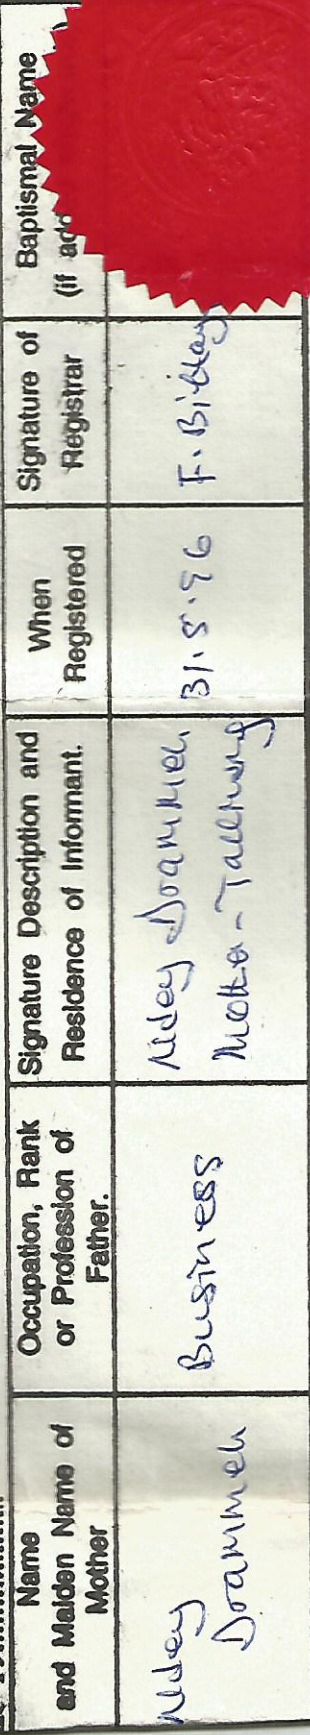 Name
and Maiden Name of
Mother
Occupation, Rank
or Profession of
Father.
Signature Description and
Residence of Informant.
When
Registered
Signature of
Registrar
Baptismal Name
(if
Ndey
Drammeh
Business
Ndey Drammeh
Mother -
31.8.96
F.